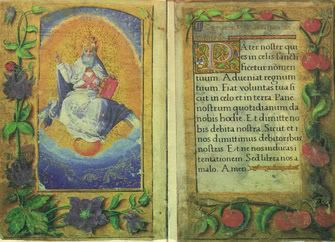 Pater noster qui
es in celis sancti
ficetur nomen
tuum. Adueniat regnum
tuum. Fiat voluntas tua si
cut in celo et in terra. Pane
nostrum quotidianum da
nobis hodie. Et dimitte no
bis debita nostra. Sicut et n
os dimittimus debitoribus
nostris. Et ne nos inducas i
tentationem. Sed libera nos a
malo. Amen.